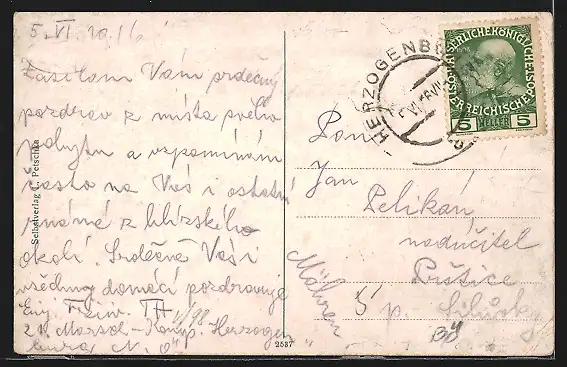 5. VI. 1916
Zasílam Vám srdečný
pozdrav z místa svého
pobytu a vzpomínám
často na Vás i ostatní
známé z blízského
okolí. Srdečně Vás i
všechny domácí pozdravuje
Frejw. TH 1/98
21. Marsch-Komp. Herzogen-
burg N. Ö.
Selbstverlag L. Petschka
2587
HERZOGENBURG
KAISERLICHE KÖNIGLICHE ÖSTERREICHISCHE POST
5 HELLER 5
Pan
Jan Pelikán
nadučitel
Prštice
p. Silůvky
Mähren